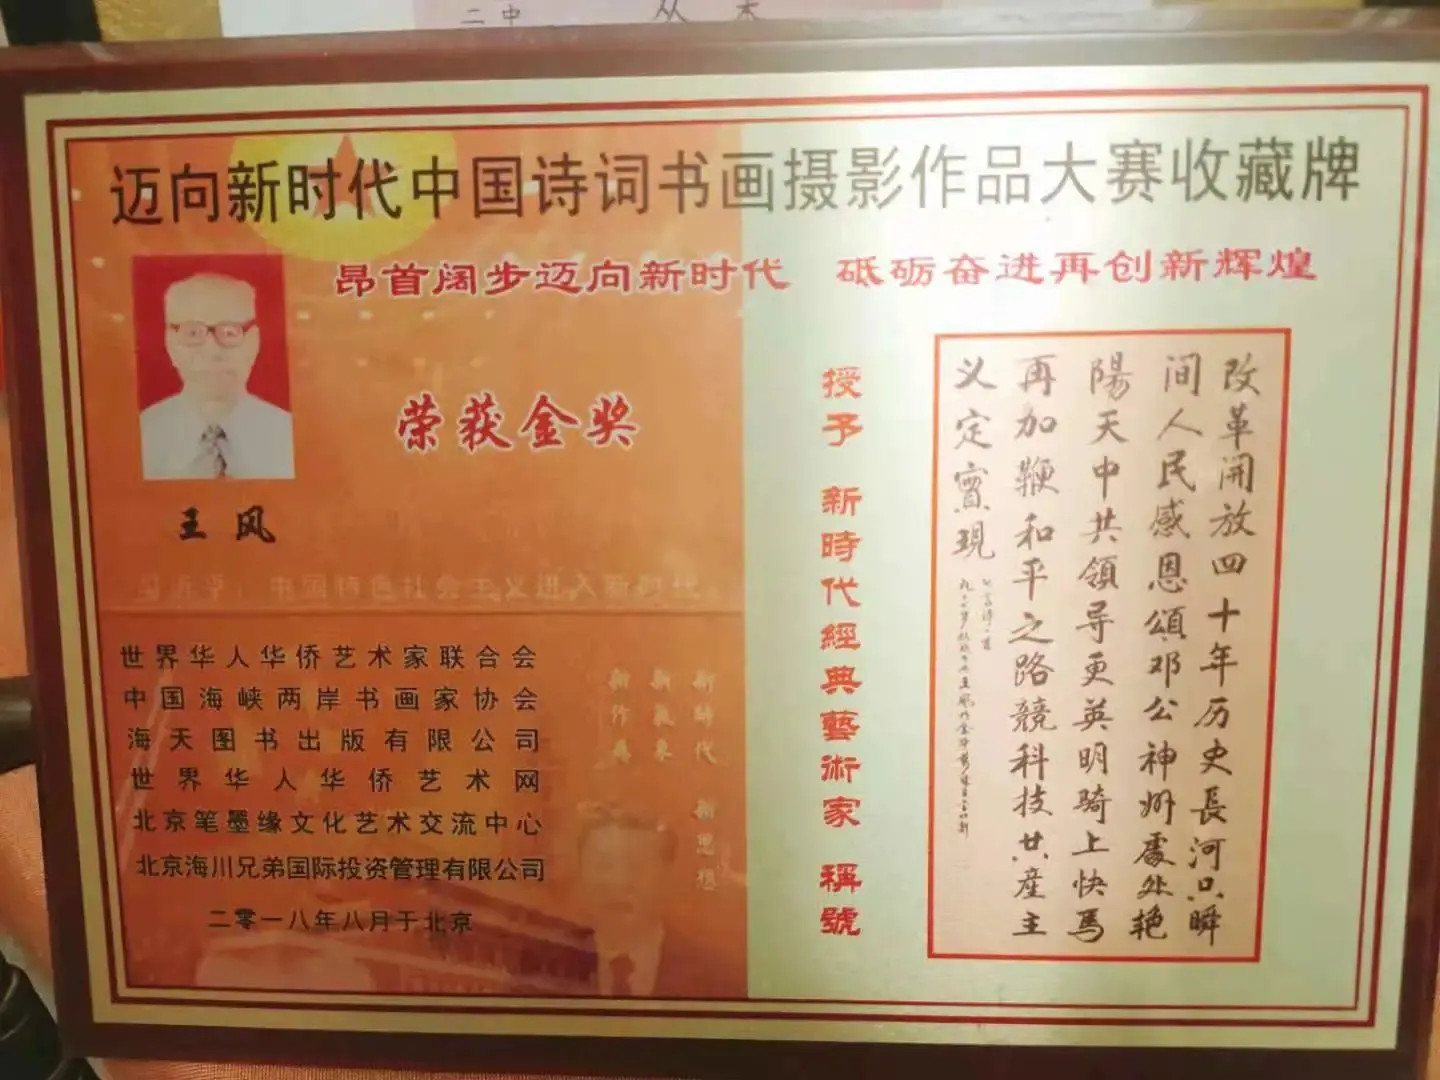 二中
迈向新时代中国诗词书画摄影作品大赛收藏牌
昂首阔步迈向新时代 砥砺奋进再创新辉煌
荣获金奖
王风
中国特色社会主义进入新时代。
世界华人华侨艺术家联合会
中国海峡两岸书画家协会
海天图书出版有限公司
世界华人华侨艺术网
北京笔墨缘文化艺术交流中心
北京海川兄弟国际投资管理有限公司
二零一八年八月于北京
新时代 新思想
新气象
新作为
授予 新時代經典藝術家 稱號
改革開放四十年历史長河只瞬
间人民感恩頌邓公神州處处艳
陽天中共領导更英明骑上快馬
再加鞭和平之路競科技共產主
义定實現